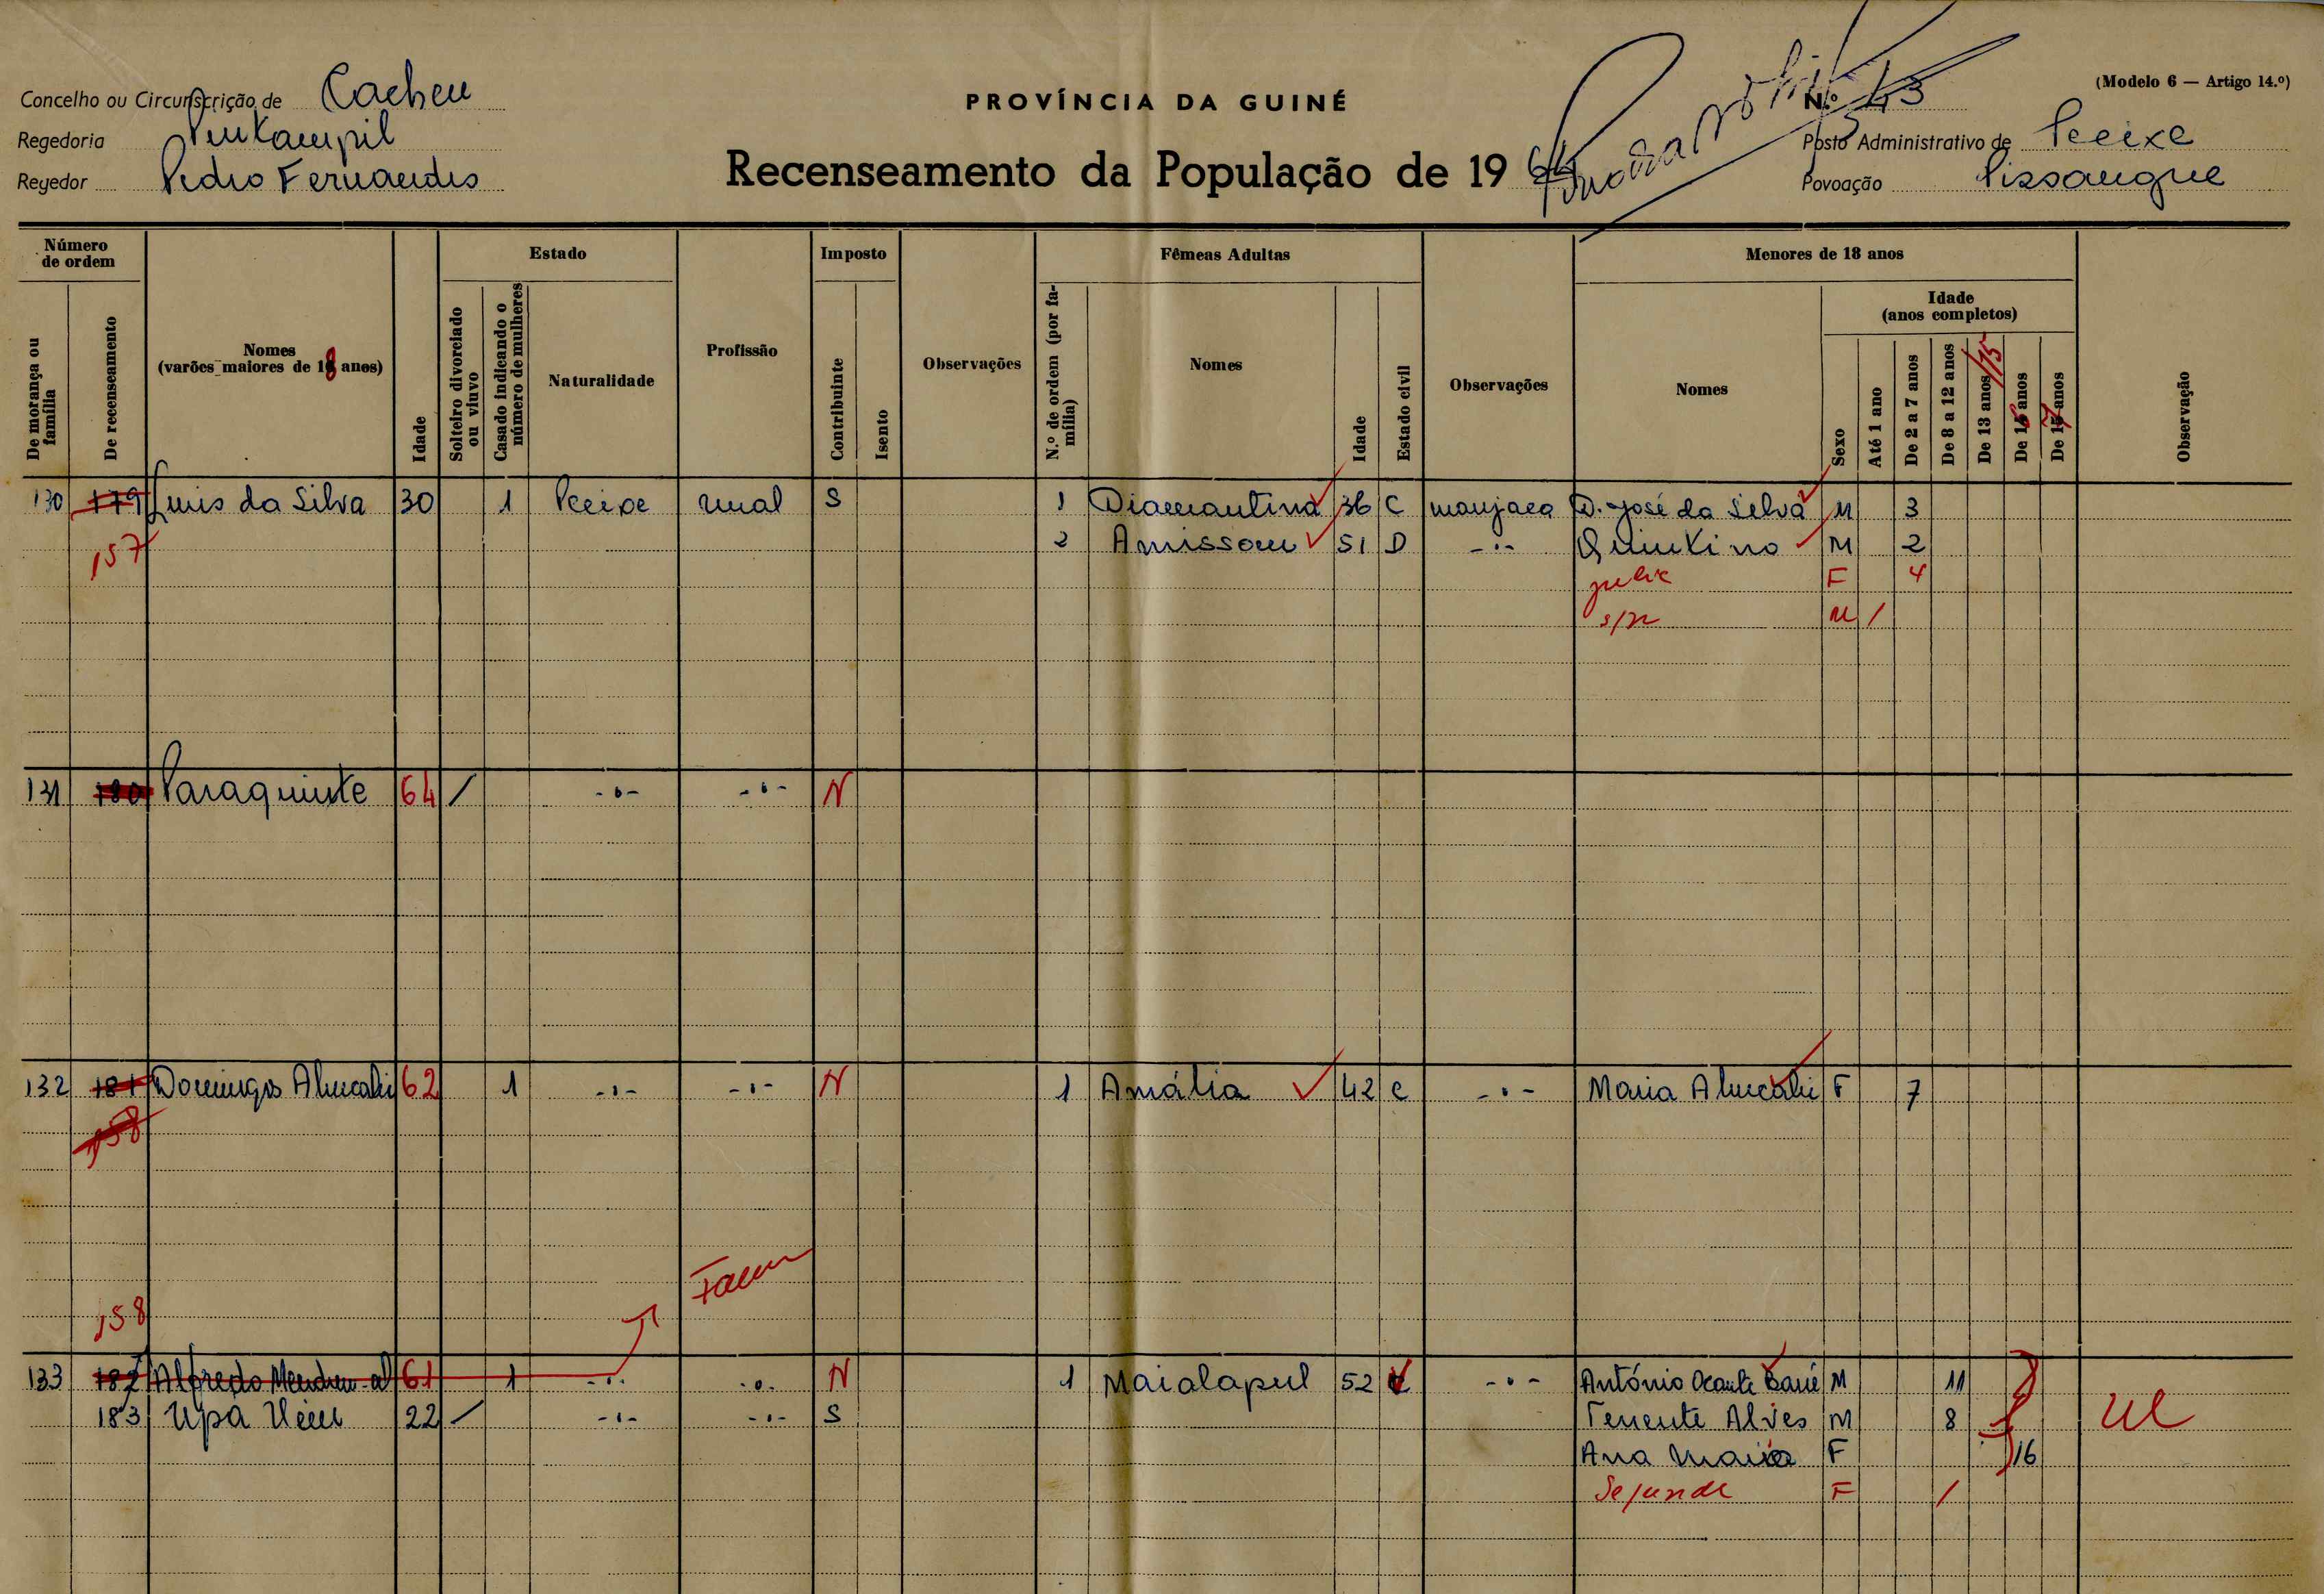 Concelho ou Circunscrição de Cacheu
Regedoria
Regedor Pedro Fernandes
PROVÍNCIA DA GUINÉ
Recenseamento da População de 19 64
(Modelo 6 — Artigo 14.º)
N.º 43
Posto Administrativo de Pecixe
Povoação Pissangue
Número de ordem
De morança ou família
De recenseamento
Nomes
(varões maiores de 18 anos)
Idade
Estado
Solteiro divorciado ou viuvo
Casado indicando o número de mulheres
Naturalidade
Profissão
Imposto
Contribuinte
Isento
Observações
Fêmeas Adultas
N.º de ordem (por família)
Nomes
Idade
Estado civil
Observações
Menores de 18 anos
Nomes
Sexo
Idade
(anos completos)
Até 1 ano
De 2 a 7 anos
De 8 a 12 anos
De 13 anos /15
De 16 anos
De 17 anos
Observação
130 179 Luis da Silva 30 1 Pecixe rural S 1 Diamantina 36 C manjaca D. José da Silva M 3
157 2 Amissom 51 D -"- Quintino M 2
F 4
s/n M /
131 180 Paraquinte 64 / -"- -"- N
132 181 Domingos 62 1 -"- -"- N 1 Amália 42 C -"- Maria F 7
158
Falem
158
133 182 Alfredo 61 1 -"- -"- N 1 Maialapul 52 -"- António M 11
183 Upa 22 / -"- -"- S Tenente Alves M 8
Ana Maria F 16
Segunda F /